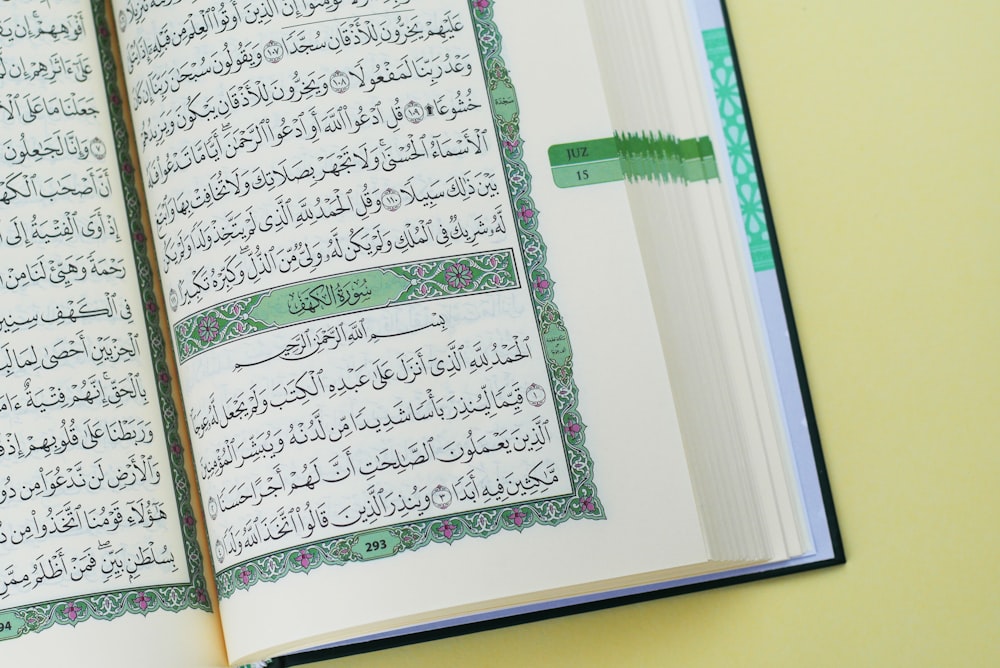 تُؤْمِنُوٓا۟ إِنَّ ٱلَّذِينَ أُوتُوا۟ ٱلْعِلْمَ مِن قَبْلِهِۦٓ إِذَا يُتْلَىٰ
عَلَيْهِمْ يَخِرُّونَ لِلْأَذْقَانِ سُجَّدًا ١٠٧ وَيَقُولُونَ سُبْحَٰنَ رَبِّنَآ إِن كَانَ
وَعْدُ رَبِّنَا لَمَفْعُولًا ١٠٨ وَيَخِرُّونَ لِلْأَذْقَانِ يَبْكُونَ وَيَزِيدُهُمْ
خُشُوعًا ۩ ١٠٩ قُلِ ٱدْعُوا۟ ٱللَّهَ أَوِ ٱدْعُوا۟ ٱلرَّحْمَٰنَ أَيًّا مَّا تَدْعُوا۟ فَلَهُ
ٱلْأَسْمَآءُ ٱلْحُسْنَىٰ وَلَا تَجْهَرْ بِصَلَاتِكَ وَلَا تُخَافِتْ بِهَا وَٱبْتَغِ
بَيْنَ ذَٰلِكَ سَبِيلًا ١١٠ وَقُلِ ٱلْحَمْدُ لِلَّهِ ٱلَّذِى لَمْ يَتَّخِذْ وَلَدًا وَلَمْ يَكُن
لَّهُۥ شَرِيكٌ فِى ٱلْمُلْكِ وَلَمْ يَكُن لَّهُۥ وَلِىٌّ مِّنَ ٱلذُّلِّ وَكَبِّرْهُ تَكْبِيرًۢا ١١١
سُورَةُ الكَهْفِ
بِسْمِ ٱللَّهِ ٱلرَّحْمَٰنِ ٱلرَّحِيمِ
ٱلْحَمْدُ لِلَّهِ ٱلَّذِىٓ أَنزَلَ عَلَىٰ عَبْدِهِ ٱلْكِتَٰبَ وَلَمْ يَجْعَل لَّهُۥ عِوَجَا
١ قَيِّمًا لِّيُنذِرَ بَأْسًا شَدِيدًا مِّن لَّدُنْهُ وَيُبَشِّرَ ٱلْمُؤْمِنِينَ
ٱلَّذِينَ يَعْمَلُونَ ٱلصَّٰلِحَٰتِ أَنَّ لَهُمْ أَجْرًا حَسَنًا ٢
مَّٰكِثِينَ فِيهِ أَبَدًا ٣ وَيُنذِرَ ٱلَّذِينَ قَالُوا۟ ٱتَّخَذَ ٱللَّهُ وَلَدًا ٤
293
سَجْدَة
JUZ
15
أَفْوَٰهِهِمْ إِن
عَلَىٰٓ ءَاثَٰرِهِمْ إِن
جَعَلْنَا مَا عَلَى
٧ وَإِنَّا لَجَٰعِلُونَ
أَنَّ أَصْحَٰبَ ٱلْكَهْفِ
إِذْ أَوَى ٱلْفِتْيَةُ إِلَى
رَحْمَةً وَهَيِّئْ لَنَا مِنْ
فِى ٱلْكَهْفِ سِنِينَ
ٱلْحِزْبَيْنِ أَحْصَىٰ لِمَا
بِٱلْحَقِّ إِنَّهُمْ فِتْيَةٌ
وَرَبَطْنَا عَلَىٰ قُلُوبِهِمْ إِذْ
وَٱلْأَرْضِ لَن نَّدْعُوَا۟ مِن
هَٰٓؤُلَآءِ قَوْمُنَا ٱتَّخَذُوا۟ مِن
بِسُلْطَٰنٍۭ بَيِّنٍ فَمَنْ أَظْلَمُ مِمَّنِ
94